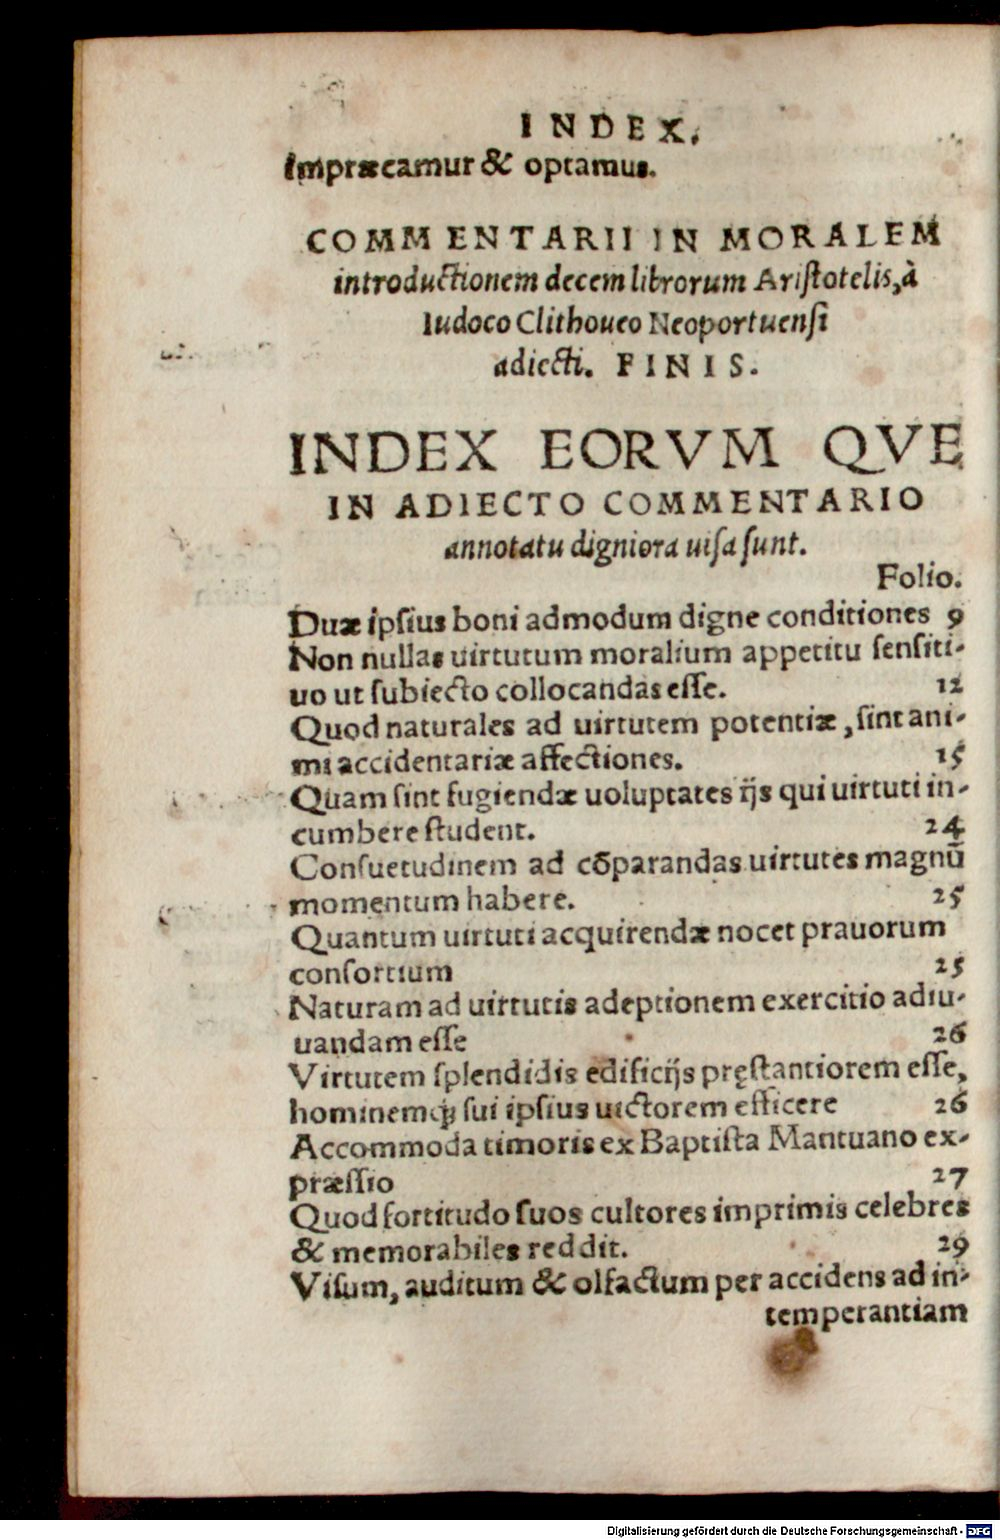 INDEX.
Impræcamur & optamus.
COMMENTARII IN MORALEM
introductionem decem librorum Aristotelis, à
Iudoco Clithoueo Neoportuensi
adiecti. FINIS.
INDEX EORVM QVE
IN ADIECTO COMMENTARIO
annotatu digniora uisa sunt.
Folio.
Duæ ipsius boni admodum digne conditiones 9
Non nullas uirtutum moralium appetitu sensiti-
uo ut subiecto collocandas esse. 12
Quod naturales ad uirtutem potentiæ, sint ani-
mi accidentariæ affectiones. 15
Quam sint fugiendæ uoluptates ijs qui uirtuti in-
cumbere student. 24
Consuetudinem ad cōparandas uirtutes magnū
momentum habere. 25
Quantum uirtuti acquirendæ nocet prauorum
consortium 25
Naturam ad uirtutis adeptionem exercitio adiu-
uandam esse 26
Virtutem splendidis edificijs pręstantiorem esse,
hominemq; sui ipsius uictorem efficere 26
Accommoda timoris ex Baptista Mantuano ex-
præssio 27
Quod fortitudo suos cultores imprimis celebres
& memorabiles reddit. 29
Visum, auditum & olfactum per accidens ad in-
temperantiam
Digitalisierung gefördert durch die Deutsche Forschungsgemeinschaft - DFG